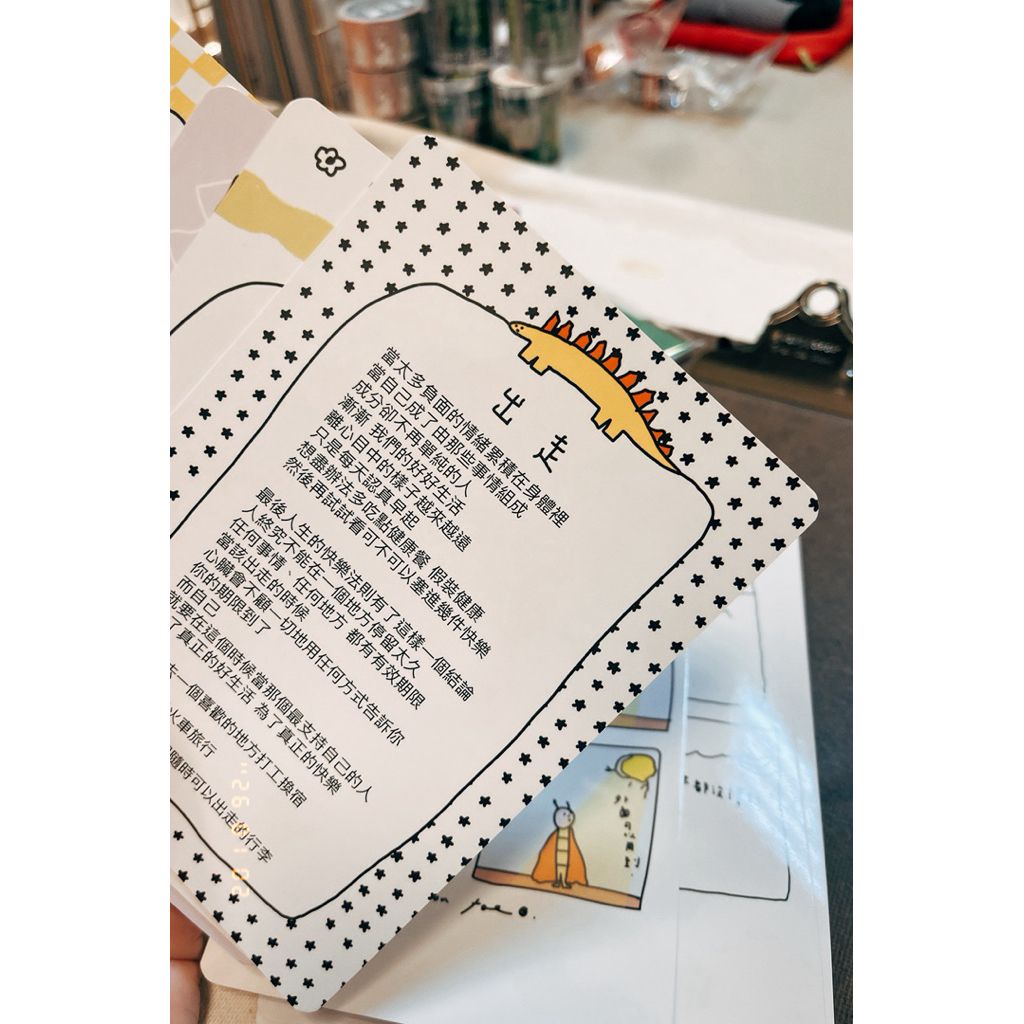 出走
當太多負面的情緒累積在身體裡
當自己成了由那些事情組成
成分卻不再單純的人
漸漸 我們的好好生活
離心目中的樣子越來越遠
只是每天認真早起
想盡辦法多吃點健康餐 假裝健康
然後再試試看可不可以塞進幾件快樂
最後人生的快樂法則有了這樣一個結論
人終究不能在一個地方停留太久
任何事情、任何地方 都有有效期限
當該出走的時候
心臟會不顧一切地用任何方式告訴你
你的期限到了
而自己
就要在這個時候當那個最支持自己的人
了真正的好生活 為了真正的快樂
一個喜歡的地方打工換宿
火車旅行
隨時可以出走的行李